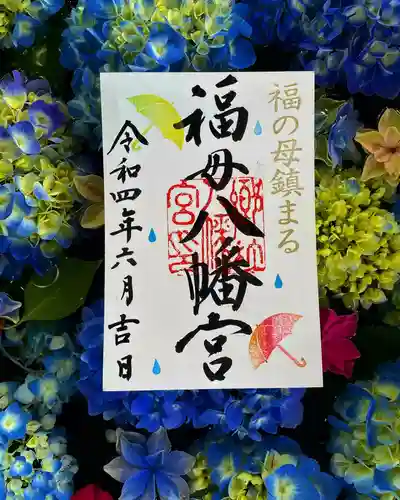 福の母鎮まる
福母八幡宮
令和四年六月吉日